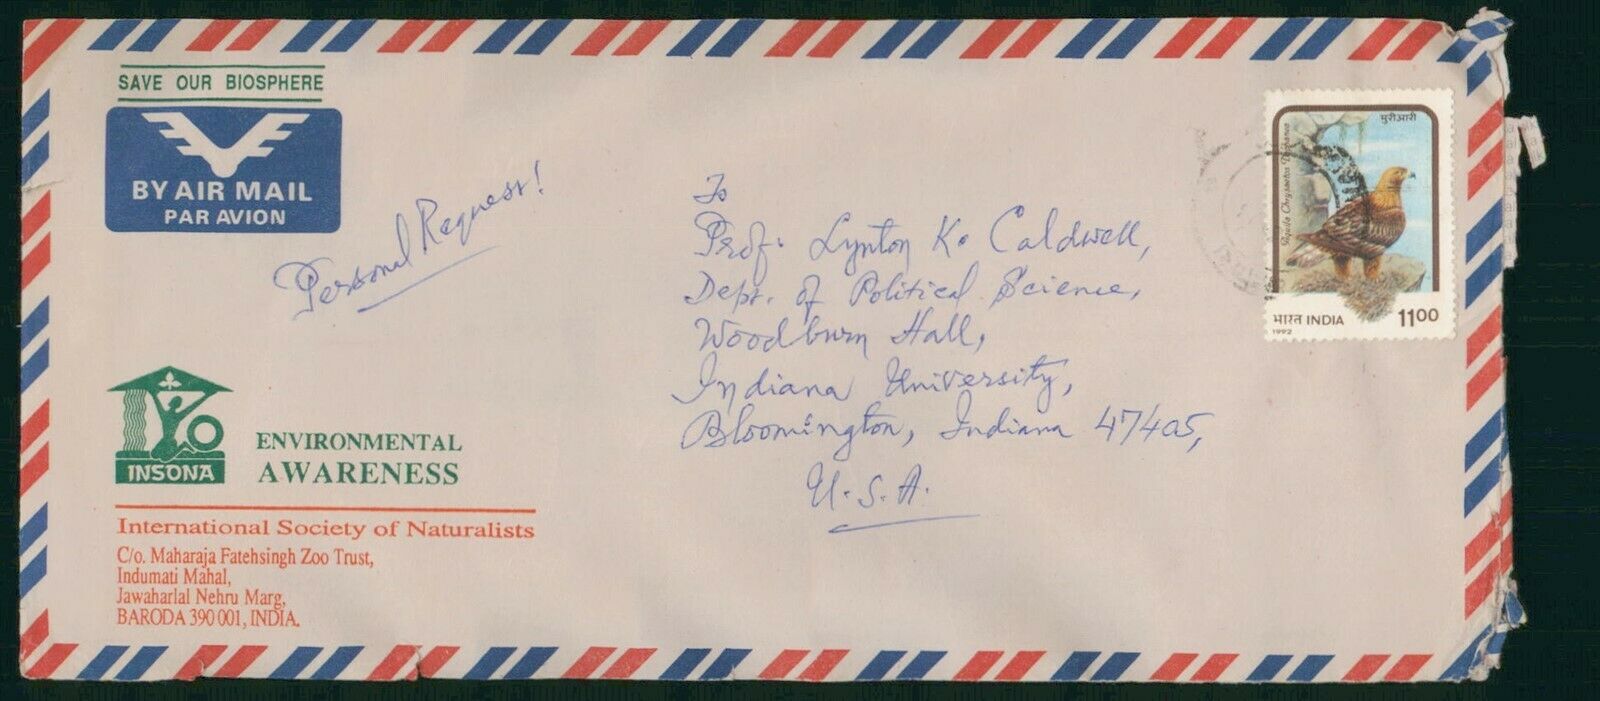 SAVE OUR BIOSPHERE
BY AIR MAIL
PAR AVION
Personal Request!
To
Prof. Lynton K. Caldwell,
Dept. of Political Science,
Woodburn Hall,
Indiana University,
Bloomington, Indiana 47405,
U.S.A.
मुरीआरी
Aquila Chrysaetos
भारत INDIA 1100
1992
INSONA
ENVIRONMENTAL
AWARENESS
International Society of Naturalists
C/o. Maharaja Fatehsingh Zoo Trust,
Indumati Mahal,
Jawaharlal Nehru Marg,
BARODA 390 001, INDIA.